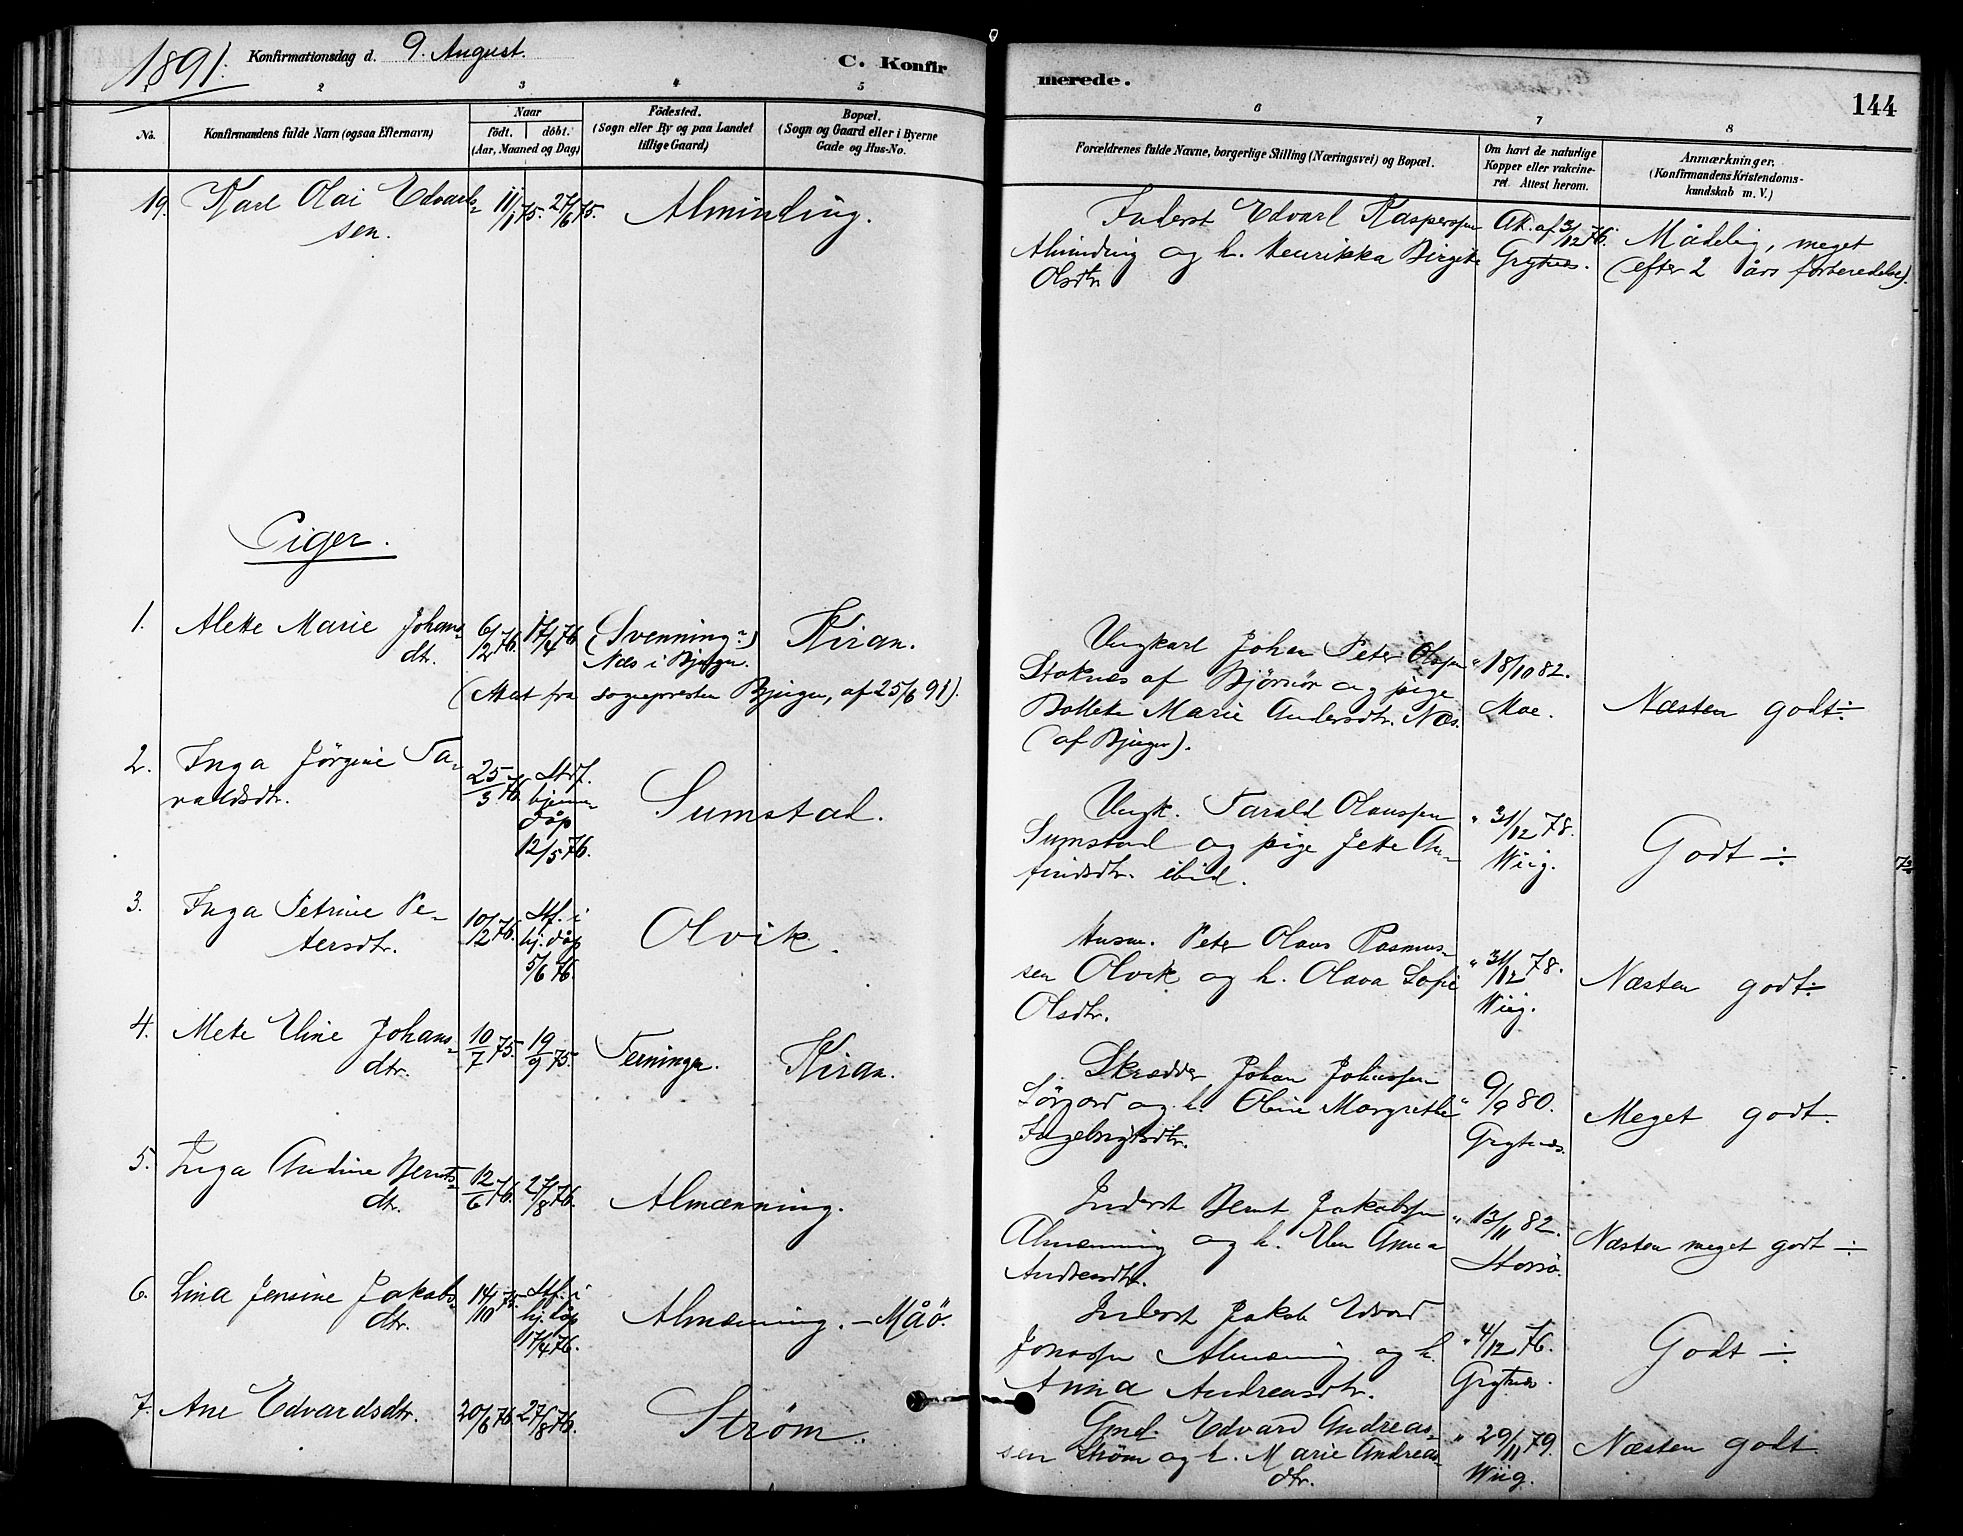 1891.
Konfirmationsdag d. 9. August.
C. Konfirmerede.
144
1 2 3 4 5 6 7 8
No.
Konfirmandens fulde Navn (ogsaa Efternavn)
Naar
født. døbt.
(Aar, Maaned og Dag)
Fødested.
(Sogn eller By og paa Landet
tillige Gaard)
Bopæl.
(Sogn og Gaard eller i Byerne
Gade og Hus-No.
Forældrenes fulde Navne, borgerlige Stilling (Næringsvei) og Bopæl.
Om havt de naturlige
Kopper eller vakcine-
ret. Attest herom.
Anmærkninger.
(Konfirmandens Kristendoms-
kundskab m. V.)
19. Karl Olai Edvard-
sen.
11/1 75. 27/6 75.
Alminding.
Inderst Edvard Kaspersen
Alminding og h. Henrikka Birgitte
Olsdtr
At. af 3/12 76.
Grytnes.
Mådelig, meget
(efter 2 års forberedelse).
Piger.
1. Alette Marie Johans-
dtr.
6/2 76. 17/4 76
(Svenning?)
Næs i Bjugn.
Kiran.
(Attest fra sognepresten Bjugn, af 25/6 91).
Ungkarl Johan Peter Olsen
Stoknes af Bjørnør og pige
Bollette Marie Andersdtr. Næs
(af Bjugn).
" 18/10 82.
Moe.
Næsten godt ÷
2. Inga Jørgine Ta-
raldsdtr.
25/3 76.
Stdf.
hjemme
døp
12/5 76.
Sumstad.
Ungk. Tarald Olaussen
Sumstad og pige Jette An-
findsdtr. ibid.
" 31/12 78.
Wiig.
Godt ÷
3. Inga Petrine Pe-
tersdtr.
10/12 76.
Stf. i
hj. døp
5/6 76
Olvik.
Husm. Peter Olaus Rasmus-
sen Olvik og h. Olava Sofie
Olsdtr.
" 31/12 78.
Wiig.
Næsten godt ÷
4. Mette Eline Johans-
dtr.
10/7 75. 19/9 75.
Terninga.
Kiran.
Skrædder Johan Johnssen
Sørgard og h. Oline Margrethe
Ingebrigtsdtr.
" 9/9 80.
Grytnes.
Meget godt.
5. Inga Andine Bernts-
dtr.
12/6 76. 27/8 76.
Almænning.
Inderst Bernt Jakobsen
Almænning og h. Elen Anna
Andreasdtr.
" 13/11 82.
Storsø.
Næsten meget godt ÷
6. Lina Jensine Jakobs-
dtr.
14/10 75.
Stf. i
hj. døp
17/4 76.
Almænning. – Måö.
Inderst Jakob Edvard
Jonassen Almænning og h.
Anna Andreasdtr.
" 4/12 76.
Grytnes.
Godt ÷
7. Ane Edvardsdtr.
20/6 76. 27/8 76.
Strøm.
Gmd. Edvard Andreas-
sen Strøm og h. Marie Andreas-
dtr.
" 29/11 79.
Wiig.
Næsten godt